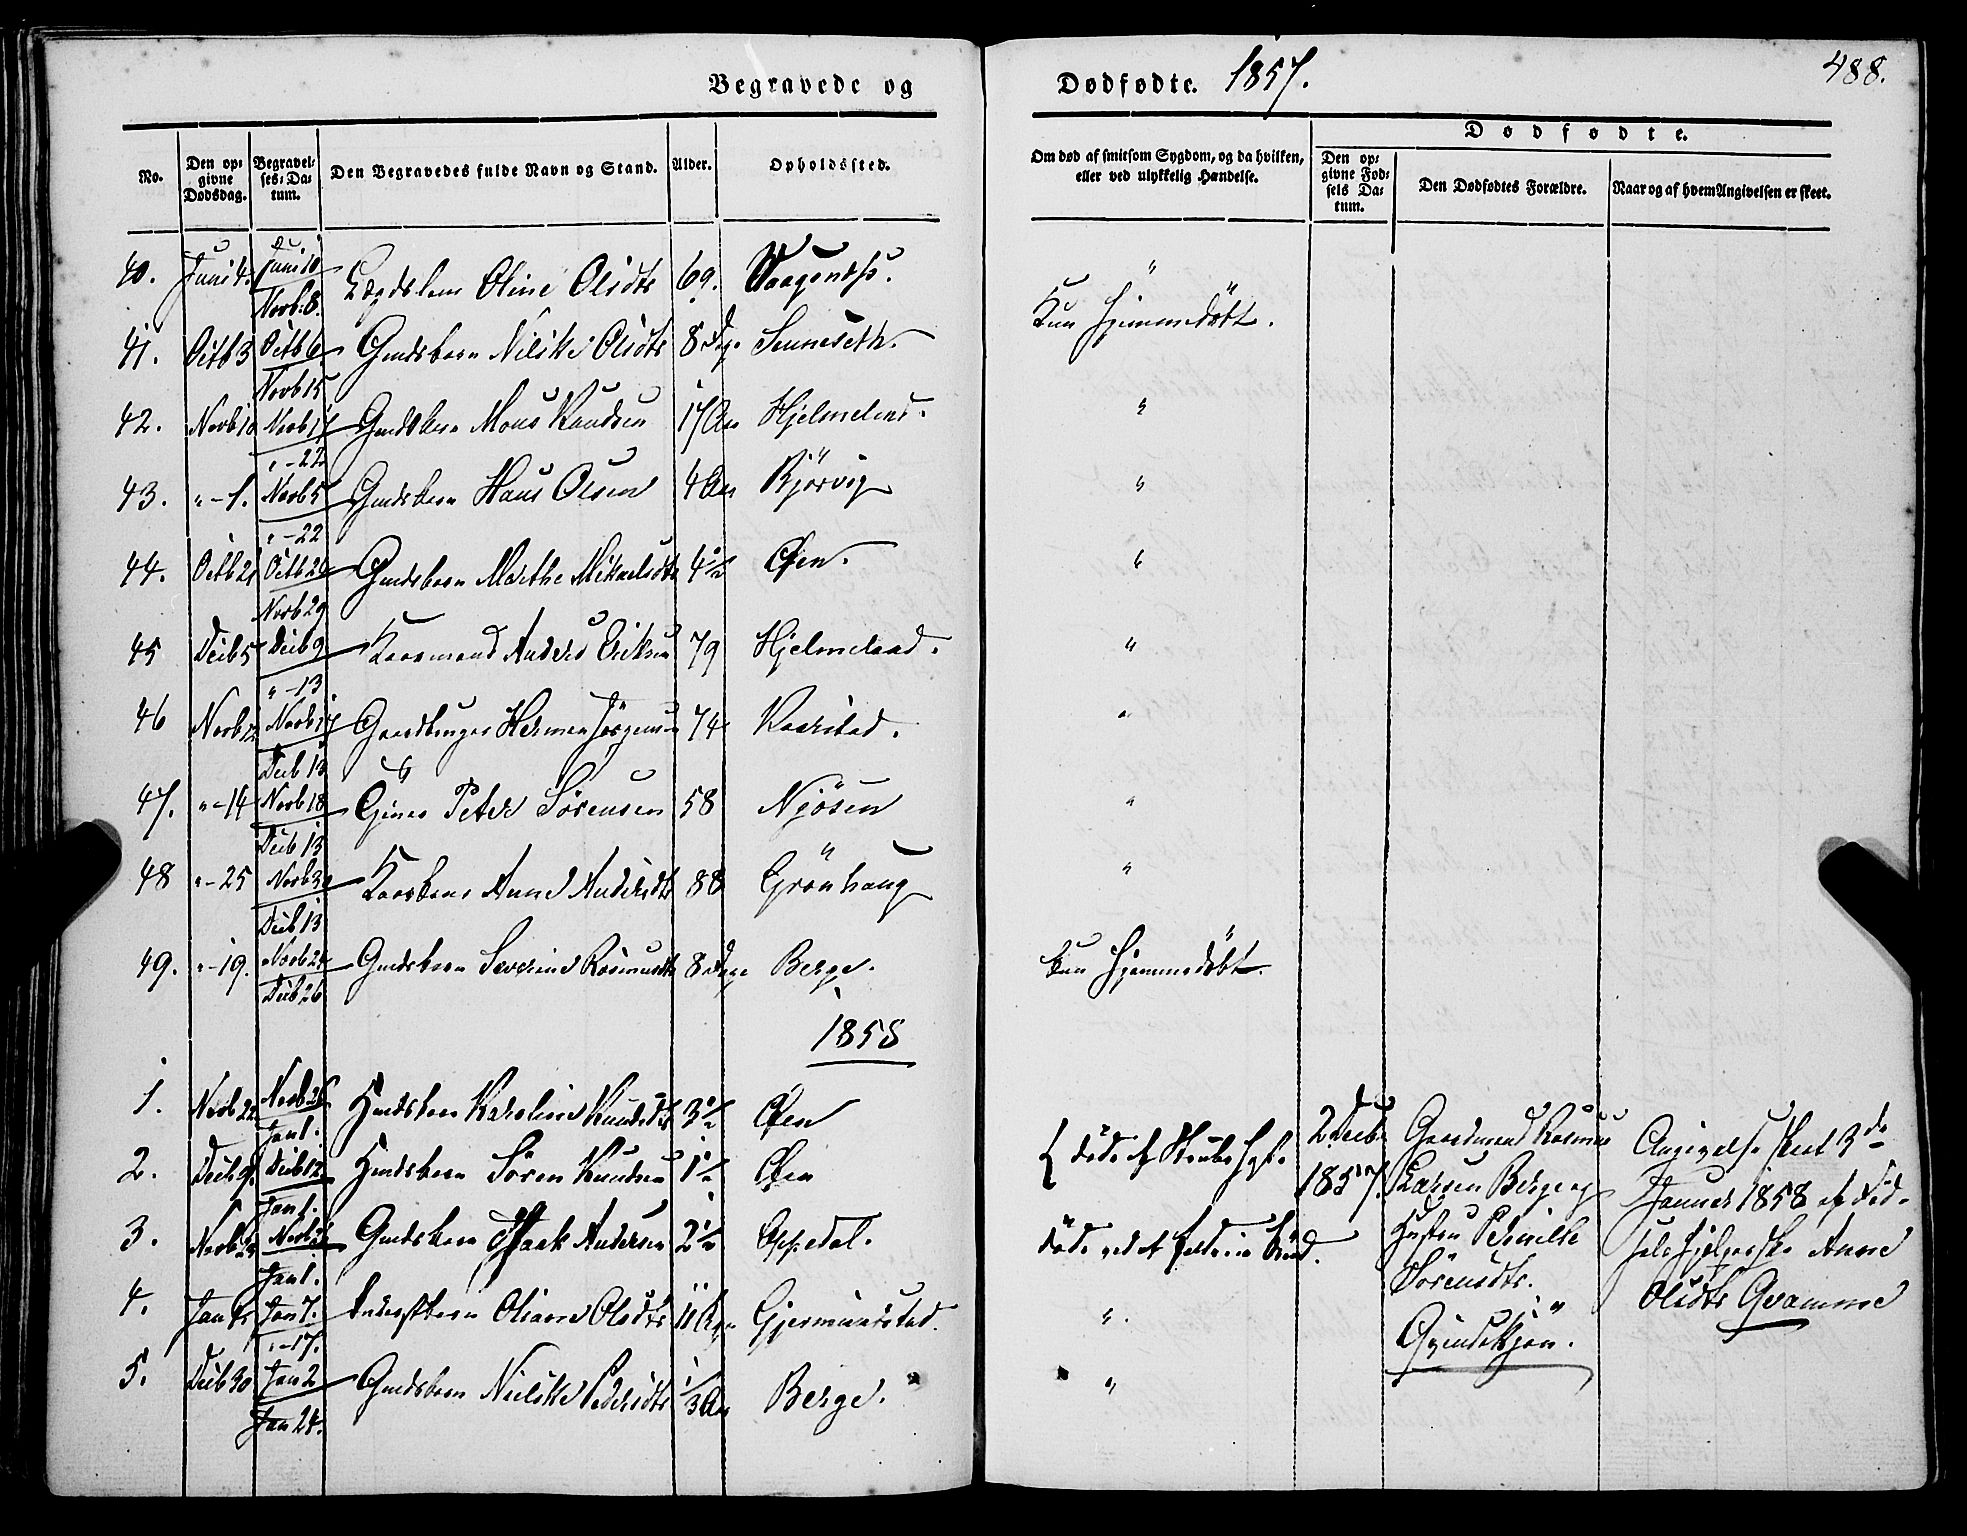 Begravede og Dødfødte. 1857. 488.
No. Den opgivne Dødsdag. Begravelses-Datum. Den Begravedes fulde Navn og Stand. Alder. Opholdssted. Om død af smitsom Sygdom, og da hvilken, eller ved ulykkelig Hændelse. Dødfødte.
Den opgivne Fødsels Datum. Den Dødfødtes Forældre. Naar og af hvem Angivelsen er skeet.
40. Juni 4. Juni 10 Novb. 8. Lægdslem Oline Olsdtr 69. "
41. Octb 3 Octb 6 Novb 15 Gmdsbarn Nilske Olsdtr 8 Dge Senneseth. Kun hjemmedöbt.
42. Novb 10 Novb 17 " - 22 Gmdsbarn Mons Knudsen 17 Aar Hjelmeland. "
43. " - 1. Novb 5 " - 22 Gmdsbarn Hans Olsen 4 Aar Bjørvig "
44. Octb 21 Octb 26 Novb 29 Gmdsbarn Marthe Mikaelsdtr 4 1/2 Øen. "
45 Decb 5 Decb 9 " - 13 Kaarmand Anders Eriksen 79 Hjelmeland. "
46 Novb 12 Novb 17 Decb 13 Gaardbruger Herman Jörgensen 74 Kaarstad. "
47. " - 14 Novb 18 Decb 13 Peter Sörensen 58 Njösen "
48 " - 25 Novb 30 Decb 13 Kaarkone Anne Andersdtr 88 Grönhaug "
49. " - 19. Novb 24 Decb 26 Gmdsbarn Severine Rasmusdtr 8 Dage Berge. kun hjemmedöbt.
1858
1. Novb 22 Novb 26 Jan 1. Hmdsbarn Karoline Knudsdtr 3 1/2 Øen
2. Decb 9. Decb 12 Jan 1. Hmdsbarn Sören Knudsen 1 1/2 Øen { döde af Strubehoste
3. Novb Novb Jan 1. Gmdsbarn Isaak Andersen 2 1/2 Oppedal. döde ved at falde i en Brönd.
4. Jan Jan 7. " - 17. Inderstbarn Oliane Olsdtr 11 Gjermundstad. ".
5. Decb 30 Jan 2 Jan 24. Gmdsbarn Nielske Pedersdtr 1/3 Aar Berge. "
2 Decbr 1857.
Gaardmand Rasmus
Larsen Berge og
Hustru Pernille
Sörensdtr.
Qvindekjön.
Angivelse skeet 3de
Januar 1858 af Föd-
selshjelperske Anne
Olsdtr Qvamme